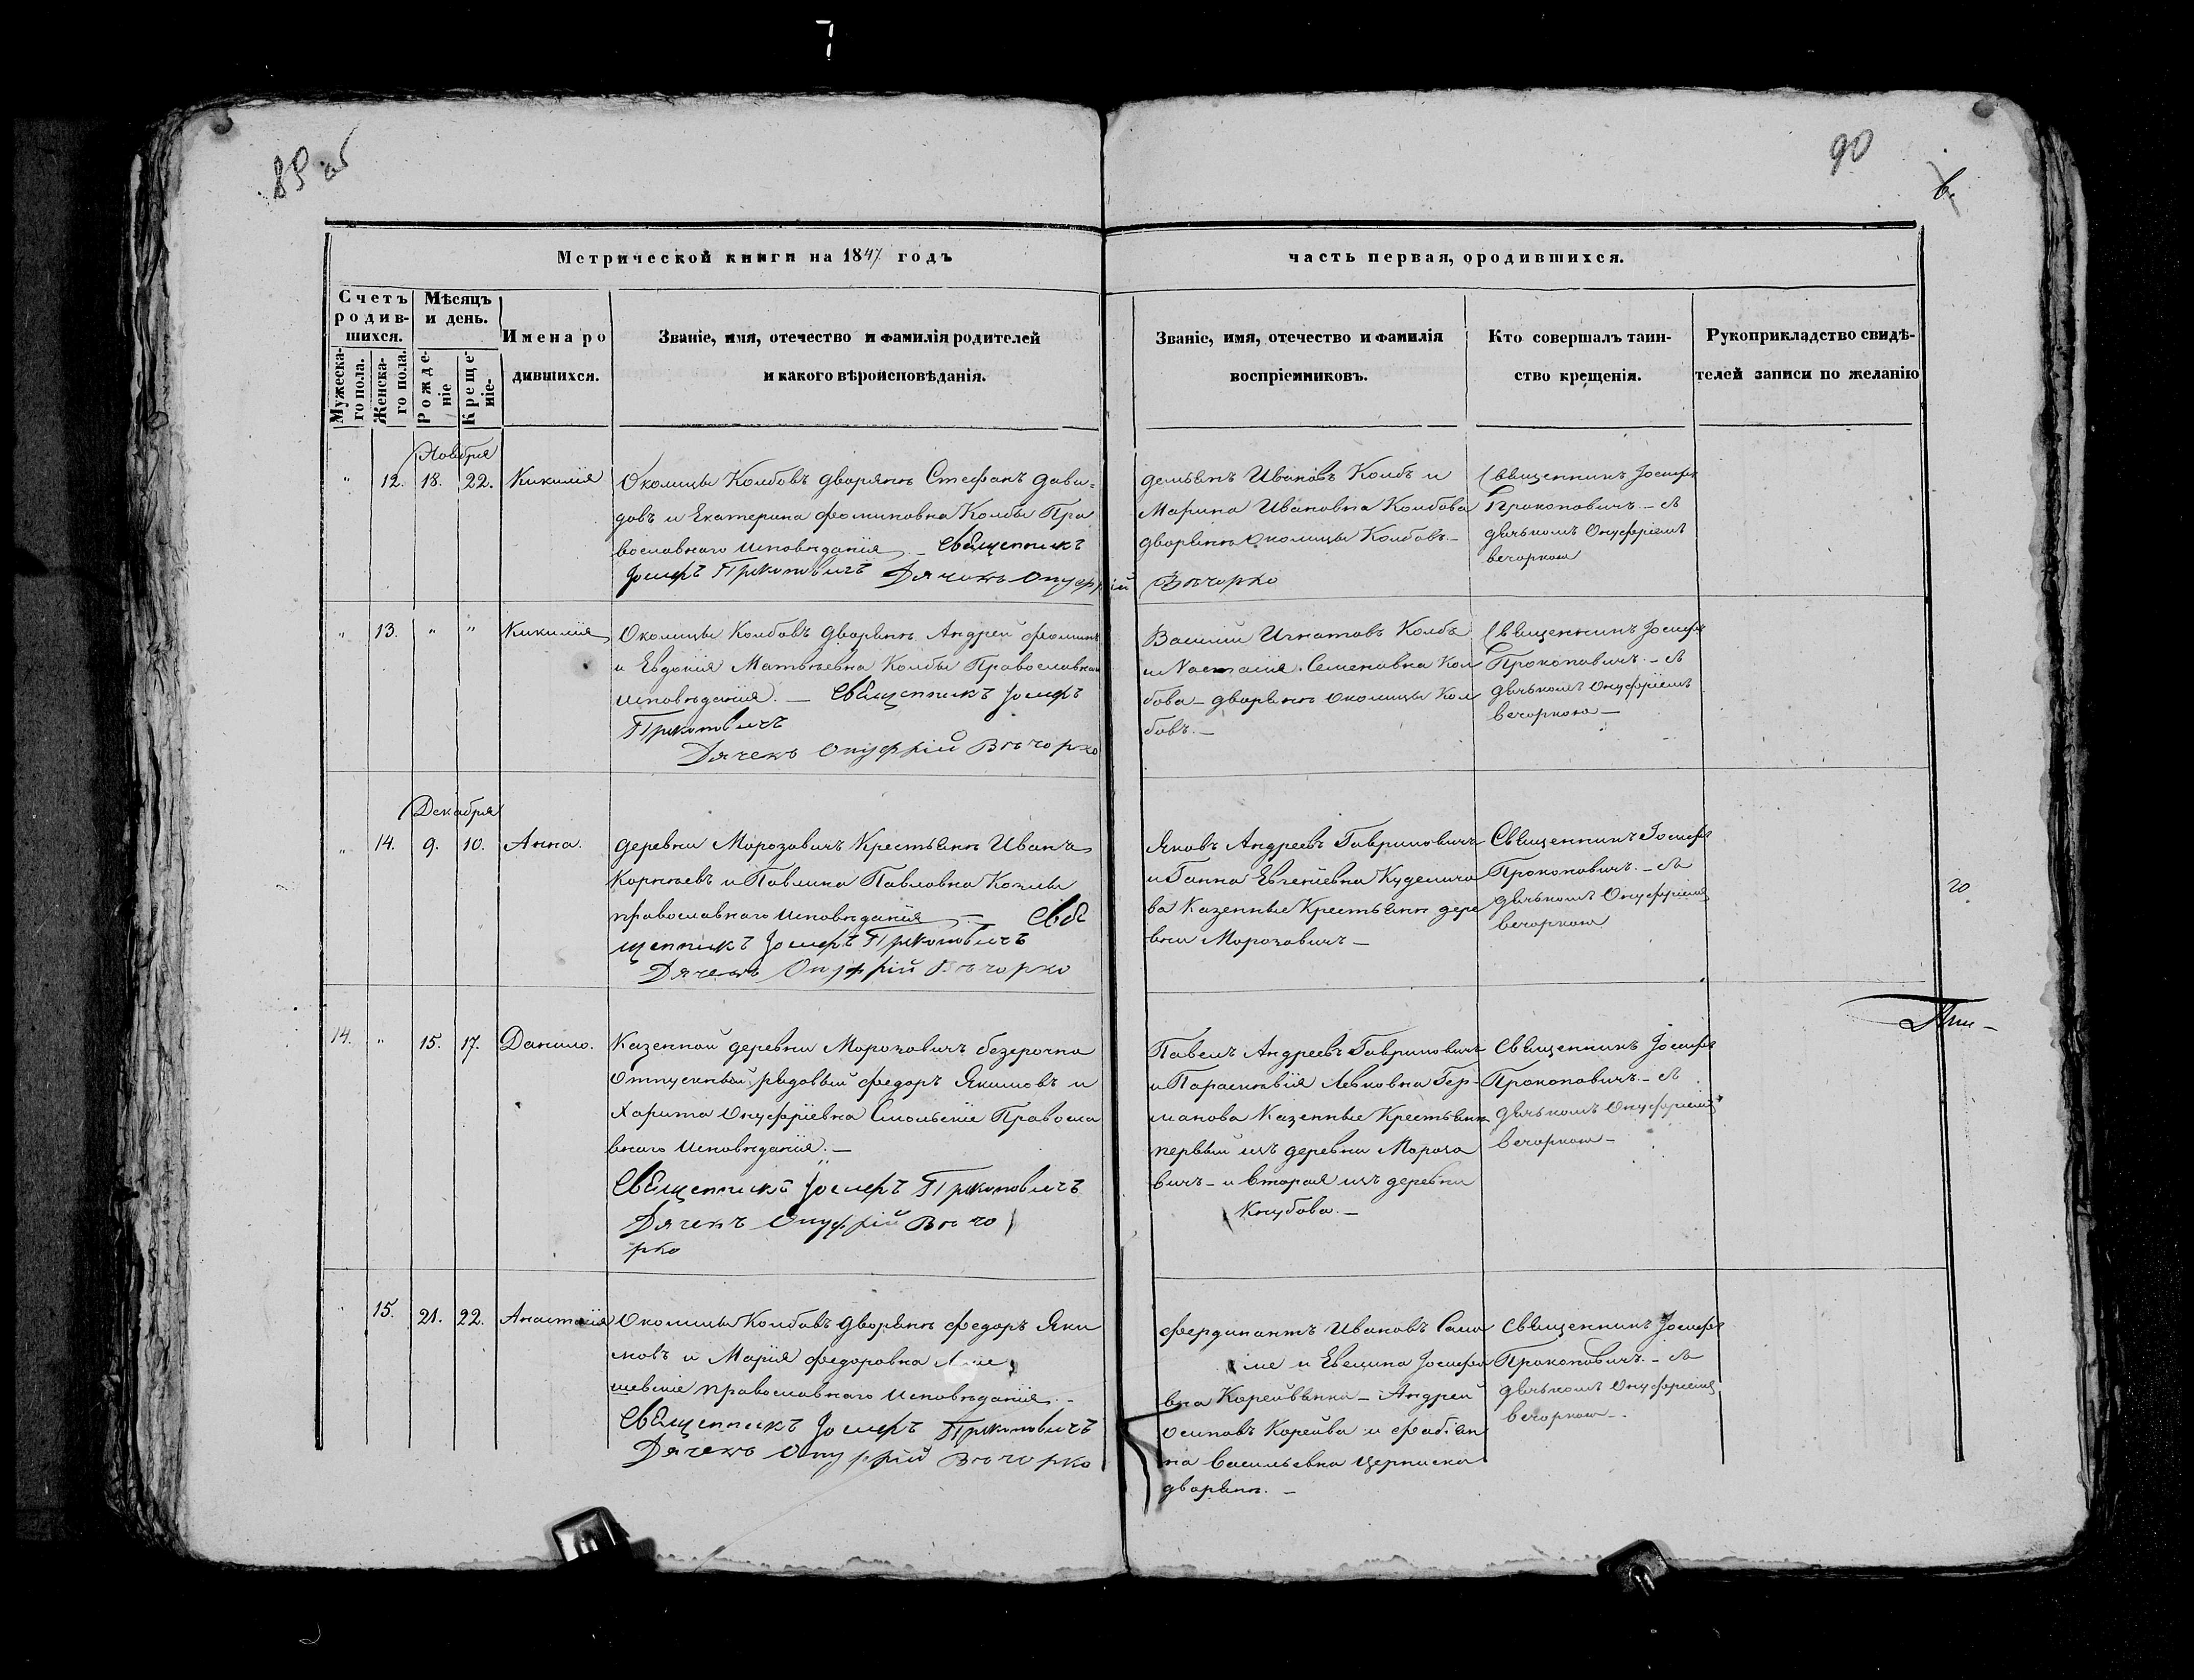 7
89 об
90
Метрической книги на 1847 годъ
часть первая, ородившихся.
Счетъ родив-шихся.
Мужеска-го пола.
Женска-го пола.
Мѣсяцъ и день.
Рожде-ніе
Креще-ніе-
Имена ро
дившихся.
Званіе, имя, отечество и фамилія родителей
и какого вѣроисповѣданія.
Званіе, имя, отечество и фамилія
воспріемниковъ.
Кто совершалъ таин-
ство крещенія.
Рукоприкладство свидѣ-
телей записи по желанію
Ноября
" 12. 18. 22. Кикилія
Околицы Колбовъ дворяне Стефанъ Дави=
довъ и Екатерина Фоминовна Колбы Пра
вославнаго исповѣданія – Священникъ
Іосифъ Прокоповичъ Дячекъ Онуфрій Вѣчорко
Демьянъ Ивановъ Колбъ и
Марина Ивановна Колбова
дворяне околицы Колбовъ. –
Священникъ Іосифъ
Прокоповичъ. – съ
дьячкомъ Онуфріемъ
вечоркою
" 13. " " Кикилія
Околицы Колбовъ дворяне Андрей Фоминъ
и Евдокія Матвѣевна Колбы Православнаго
исповѣданія. – Священникъ Іосифъ
Прокоповичъ
Дячекъ Онуфрій Вѣчорко
Василій Игнатовъ Колбъ
и Настасія Семеновна Кол
бова – дворяне околицы Кол
бовъ. –
Священникъ Іосифъ
Прокоповичъ. – съ
дьячкомъ Онуфріемъ
вечоркою –
Декабря
" 14. 9. 10. Анна.
деревни Морозовичъ Крестьяне Иванъ
Корнѣевъ и Павлина Павловна Козлы
православнаго исповѣданія – Свя
щенникъ Іосифъ Прокоповичъ
Дячекъ Онуфрій Вѣчорко
Яковъ Андреевъ Гавриловичъ
и Ганна Евгеніевна Куделичо
ва Казенные Крестьяне дере
вни Морозовичъ –
Священникъ Іосифъ
Прокоповичъ. – съ
дьячкомъ Онуфріемъ
вечоркою
20
14. " 15. 17. Данило.
Казенной деревни Морозовичъ безсрочно
отпускный рядовый Федоръ Якимовъ и
Харита Онуфріевна Смольскіе Правосла
внаго исповѣданія. –
Священникъ Іосифъ Прокоповичъ
Дячекъ Онуфрій Вѣчо
рко
Павелъ Андреевъ Гавриловичъ
и Параскевія Левковна Гер-
манова Казенные Крестьяне
первый изъ деревни Морозо
вичъ – и вторая изъ деревни
Кнубова. –
Священникъ Іосифъ
Прокоповичъ. – съ
дьячкомъ Онуфріемъ
вечоркою –
15. 21. 22. Анастасія
Околицы Колбовъ дворяне Федоръ Яки
мовъ и Марія Федоровна
шевскіе православнаго исповѣданія. –
Священникъ Іосифъ Прокоповичъ
Дячекъ Онуфрій Вѣчорко
Фердинантъ Ивановъ
и Евелина Іосифо
вна Корейвянка – Андрей
Осиповъ Корейва и Фабіан
на Васильевна
дворяне. –
Священникъ Іосифъ
Прокоповичъ. – съ
дьячкомъ Онуфріемъ
вечоркою –